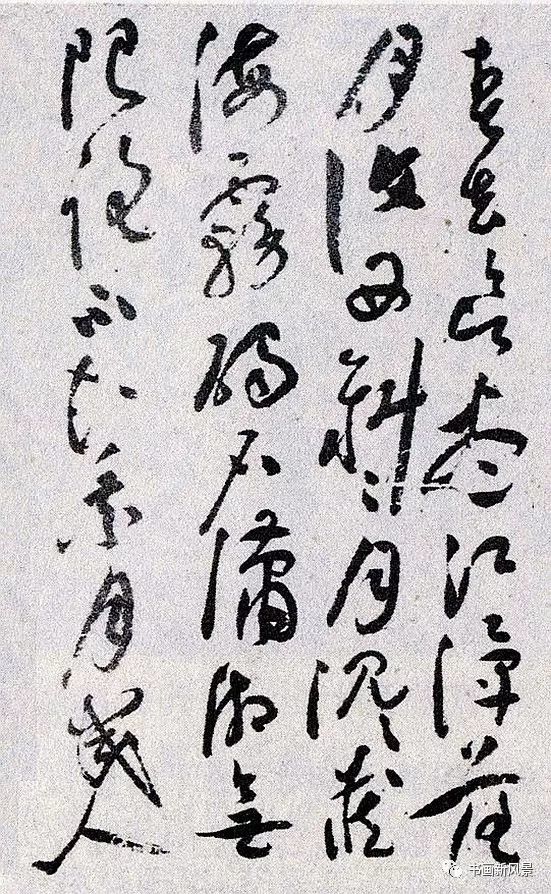 春去欲盡江潭落
月復西斜〻月沉〻藏
海霧碣石瀟湘無
限路不知乘月幾人
书画新风景